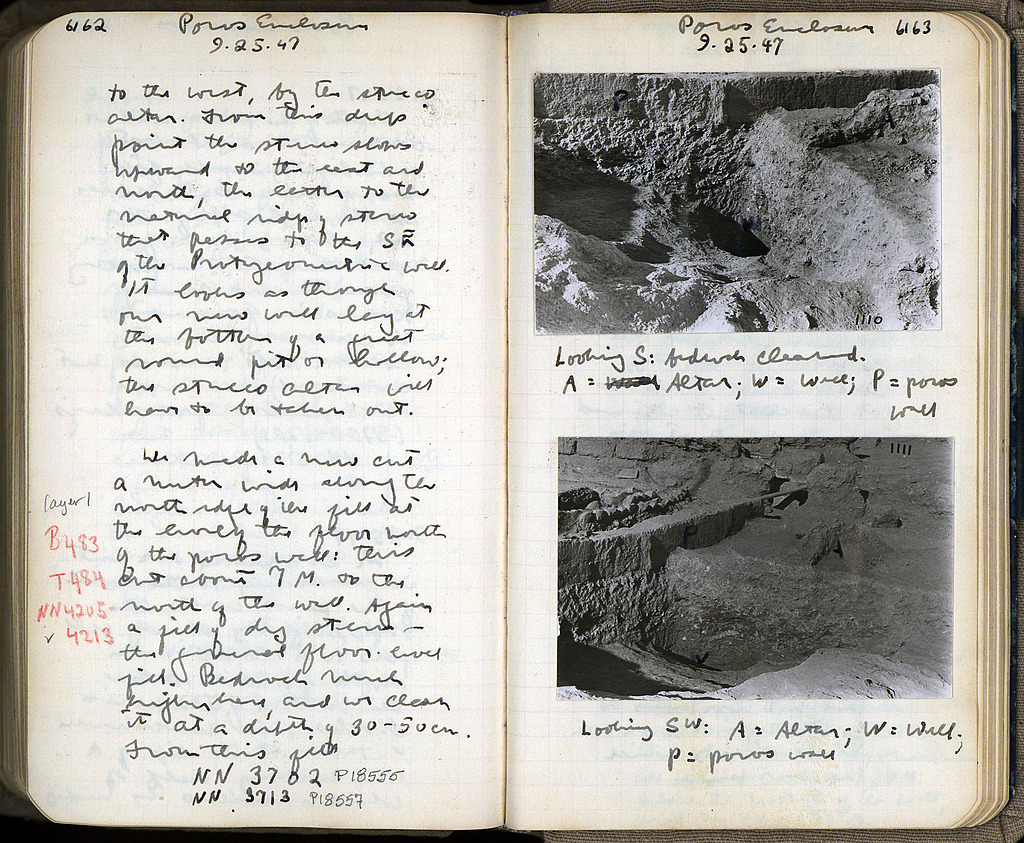 6162
Poros Enclosure
9.25.47
to the west, by the stucco
altar. From this deep
point the stereo slopes
upward to the east and
north, the latter to the
natural ridge of stereo
that passes to the S
of the Protogeometric well.
It looks as though
our new well lay at
the bottom of a great
round pit or hollow;
the stucco altar will
have to be taken out.
We made a new cut
a meter wide along the
north edge of the fill at
the level of the floor north
of the poros wall: this
cut about 7 M. to the
north of the wall. Again
a fill of dug stereo —
the general floor level
fill. Bedrock much
higher here, and we clear
it at a depth of 30-50 cm.
From this fill
NN 3702 P18555
NN 3713 P18557
layer I
B483
T484
NN4205-
v 4213
Poros Enclosure 6163
9.25.47
P
A
W
1110
Looking S: bedrock cleaned.
A = Altar; W = Well; P = poros
wall
1111
P
A
W
Looking SW: A = Altar; W = Well;
P = poros wall